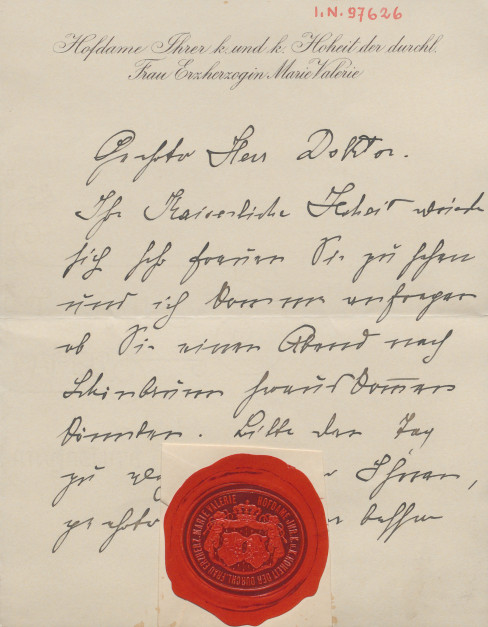 I.N. 97626
Hofdame Ihrer k. und k. Hoheit der durchl.
Frau Erzherzogin Marie Valerie
Geehrter Herr Doktor.
Ihre Kaiserliche Hoheit würde
sich sehr freuen Sie zu sehen
und ich komme anfragen
ob Sie einen Abend nach
Schönbrunn herauskommen
könnten. Bitte den Tag
zu
geehrter
HOFDAME IHR. K. U. K. HOHEIT DER DURCHL. FRAU ERZHERZ. MARIE VALERIE